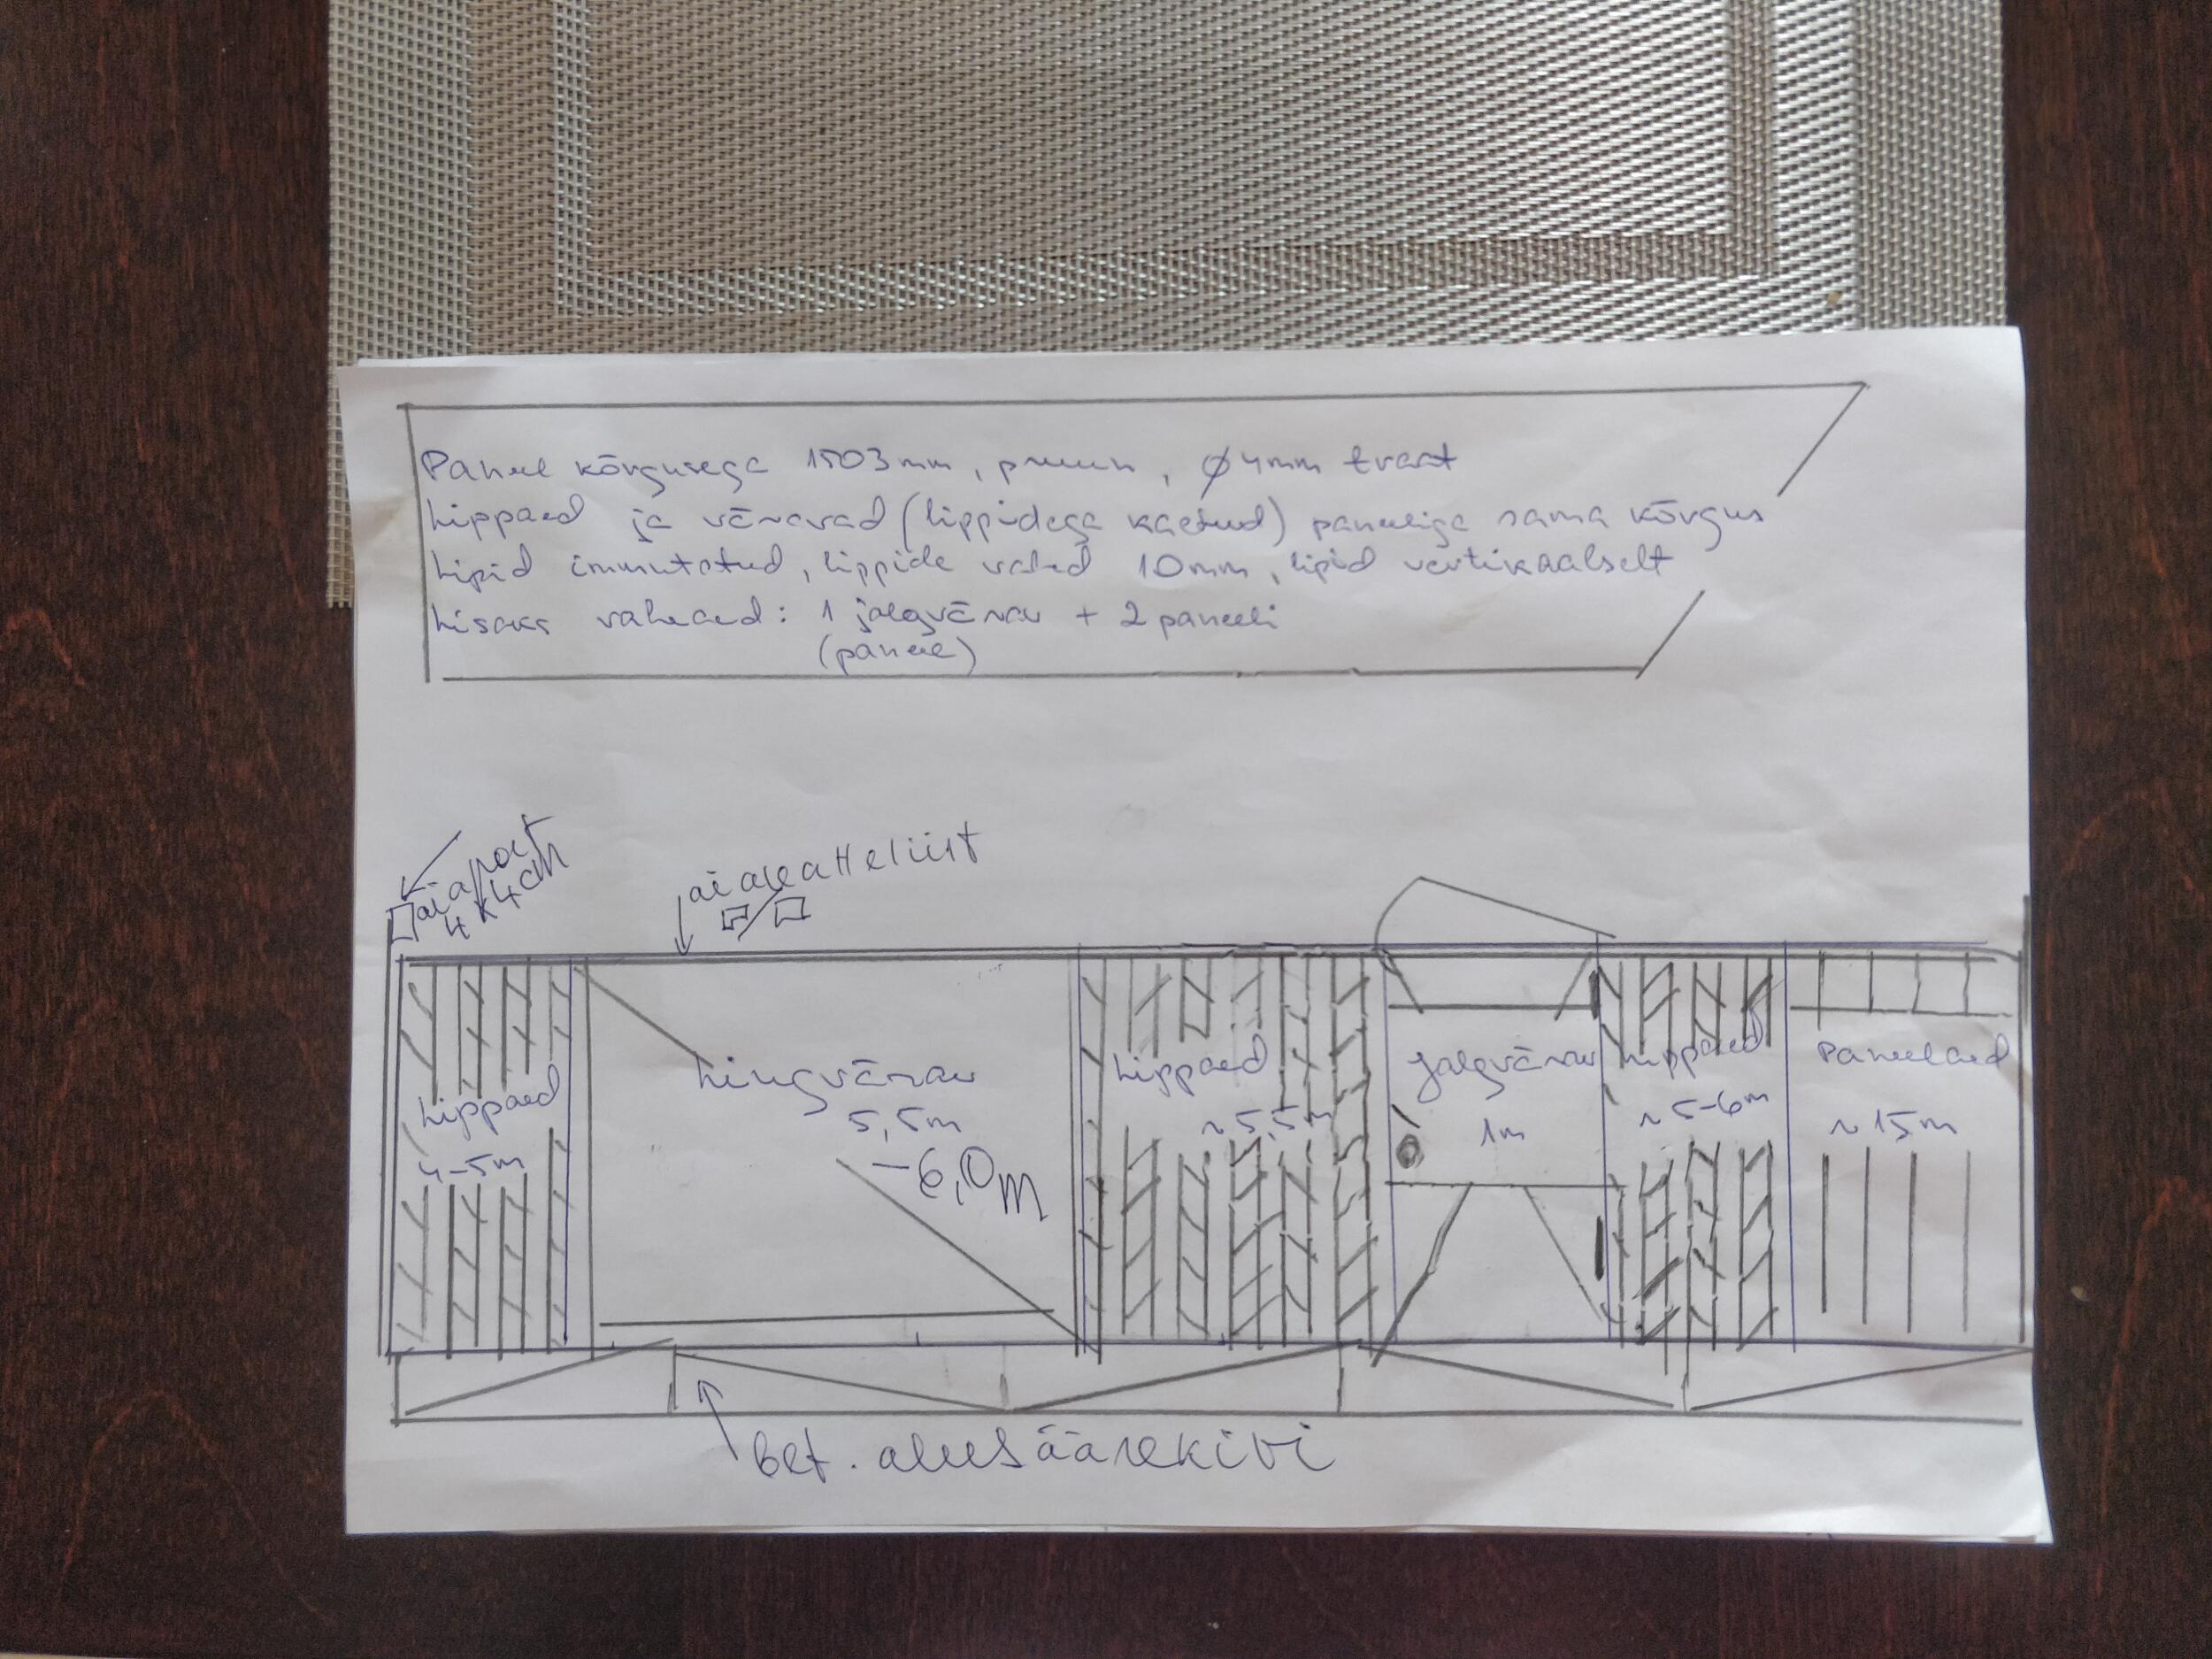 Paneel kõrgusega 1503mm, pruun, ø4mm traat
Lippaed ja väravad (lippidega kaetud) paneeliga sama kõrgus
Lipid immutatud, lippide vahed 10mm, lipid vertikaalselt
Lisaks vaheaed: 1 jalgvärav + 2 paneeli
(paneel)
aiapost
4x4cm
aia katteliist
Lippaed
4-5m
Liugvärav
5,5m
-6,0m
Lippaed
~5,5m
Jalgvärav
1m
Lippaed
~5-6m
Paneelaed
~15m
bet. alusäärekivi